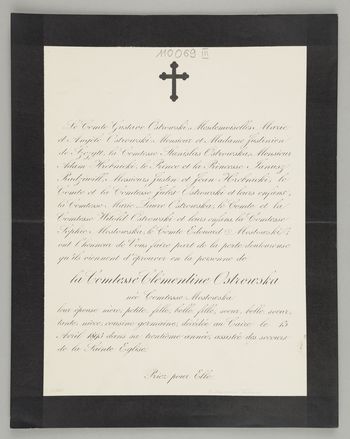 110069 III
Le Comte Gustave Ostrowski, Mesdemoiselles Marie
et Angèle Ostrowski, Monsieur et Madame Justinien
de Szczytt, la Comtesse Stanislas Ostrowska, Monsieur
Adam Hrebnicki, le Prince et la Princesse Janusz
Radziwill, Messieurs Justin et Jean Hrebnicki, le
Comte et la Comtesse Jules Ostrowski et leurs enfants,
la Comtesse Marie Laure Ostrowska, le Comte et la
Comtesse Witold Ostrowski et leurs enfants, la Comtesse
Sophie Mostowska, le Comte Edouard Mostowski
ont l'honneur de Vous faire part de la perte douloureuse
qu'ils viennent d'éprouver en la personne de
la Comtesse Clémentine Ostrowska
née Comtesse Mostowska
leur épouse, mère, petite fille, belle fille, sœur, belle sœur,
tante, nièce, cousine germaine, décédée au Caire le 15
Avril 1895 dans sa trentième année, assistée des secours
de la Sainte Eglise.
Priez pour Elle.